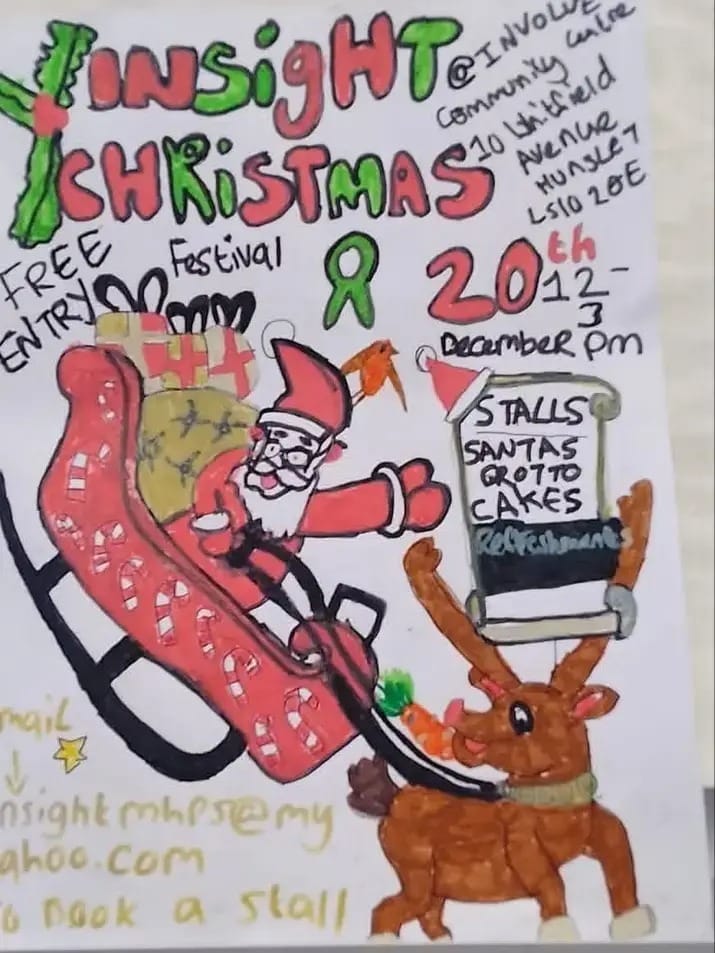 INSigHT
CHRiSTMAS
@INVOLVE
Community Centre
10 Whitfield
Avenue
HUNSLET
LS10 2QE
FREE
ENTRY
Festival
20th
12-
3
December pm
STALLS
SANTAS
GROTTO
CAKES
Refreshments
mail
nsightmhps@my
ahoo.com
o Book a stall